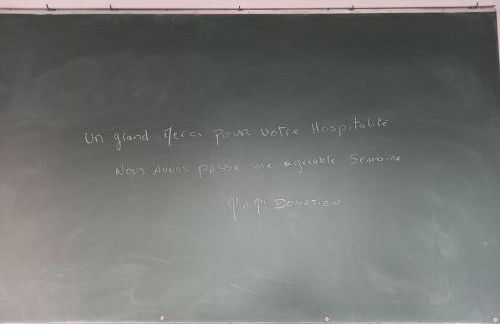 Un grand Merci pour votre Hospitalité
Nous avons passé une agréable Semaine
DONATIEN